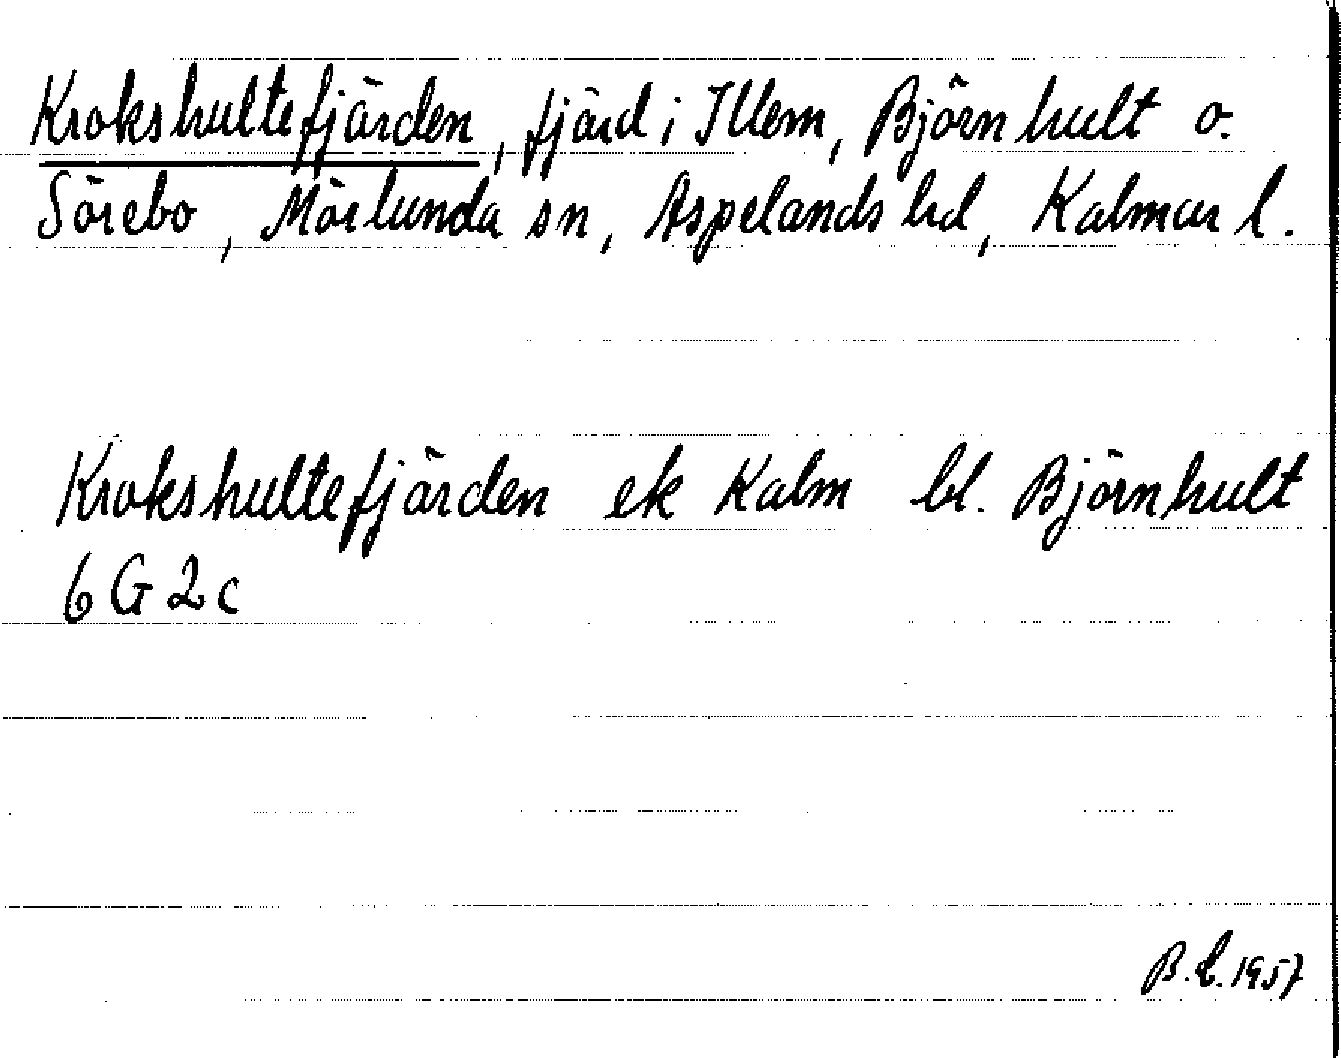 Krokshultefjärden, fjärd i Illern, Björnhult o.
Sörebo, Mörlunda sn, Aspelands hd, Kalmar l.
Krokshultefjärden ek Kalm bl. Björnhult
6 G 2 c
B.L. 1957